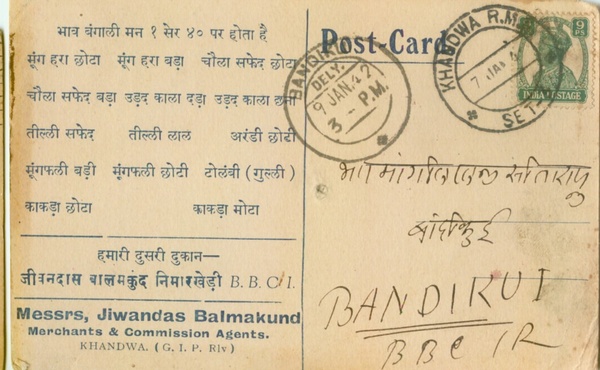 भाव बंगाली मन १ सेर ४० पर होता है
मूंग हरा छोटा मूंग हरा बड़ा चौला सफेद छोटा
चौला सफेद बड़ा उड़द काला दड़ा उड़द काला छोटा
तील्ली सफेद तील्ली लाल अरंडी छोटी
मूंगफली बड़ी मूंगफली छोटी टोलंबी (गुल्ली)
काकड़ा छोटा काकड़ा मोटा
हमारी दुसरी दुकान—
जीवनदास बालमकुंद निमारखेड़ी B. B. C. I.
Messrs, Jiwandas Balmakund
Merchants & Commission Agents.
KHANDWA. (G. I. P. Rly)
Post-Card
BANDIKUI
DELY.
9 JAN. 42
3 - P.M.
KHANDWA R.M.S.
7 JAN. 4
SET
9 PS
INDIA POSTAGE
बांदीकुई
BANDIKUI
BBC IR